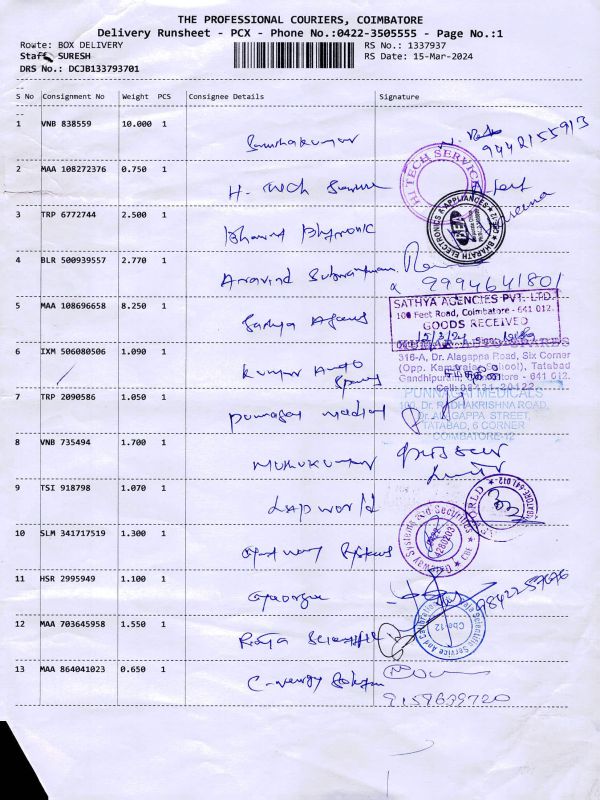 THE PROFESSIONAL COURIERS, COIMBATORE
Delivery Runsheet - PCX - Phone No.:0422-3505555 - Page No.:1
Route: BOX DELIVERY
RS No.: 1337937
Staff: SURESH
RS Date: 15-Mar-2024
DRS No.: DCJB133793701
S No Consignment No Weight PCS Consignee Details Signature
1 VNB 838559 10.000 1
9442155913
2 MAA 108272376 0.750 1
HI TECH SERVICE
3 TRP 6772744 2.500 1 Bharat
BHARATH ELECTRONICS & APPLIANCES
4 BLR 500939557 2.770 1 Aravind Subramaniam
9994641801
5 MAA 108696658 8.250 1 Sathya Agencies
SATHYA AGENCIES PVT. LTD.
100 Feet Road, Coimbatore - 641 012.
GOODS RECEIVED
15/3/24
6 IXM 506080506 1.090 1 Kumar Auto Spares
316-A, Dr. Alagappa Road, Six Corner
(Opp. Kamarajar School), Tatabad
Gandhipuram, Coimbatore - 641 012.
7 TRP 2090586 1.050 1 Punnagai Medical
PUNNAGAI MEDICALS
Dr. RADHAKRISHNA ROAD,
Dr. ALAGAPPA STREET,
TATABAD, 6 CORNER
COIMBATORE-12
8 VNB 735494 1.700 1 Muthukumar
9 TSI 918798 1.070 1 Lapworld
10 SLM 341717519 1.300 1
11 HSR 2995949 1.100 1
12 MAA 703645958 1.550 1 Raja Scientific
Cbe-12
13 MAA 864041023 0.650 1
9159699720